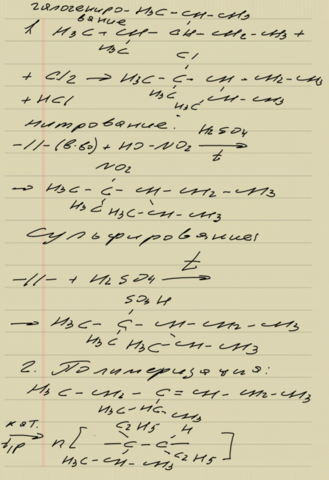 галогениро- H3C-CH-CH3
вание
1 H3C-CH- CH-CH2-CH3 +
H3C
Cl
+ Cl2 → H3C-C-CH-CH2-CH3
H3C CH-CH3
+ HCl H3C
Нитрование: H2SO4
-//- (в-во) + HO-NO2 → t
NO2
→ H3C-C-CH-CH2-CH3
H3C H3C-CH-CH3
Сульфирование:
-//- + H2SO4 → t
SO3H
→ H3C-C-CH-CH2-CH3
H3C H3C-CH-CH3
2. Полимеризация:
H3C-CH2-C=CH-CH2-CH3
H3C-HC-CH3
кат. C2H5 H
→ n[-C-C-]
t,p H3C-CH-CH3 C2H5